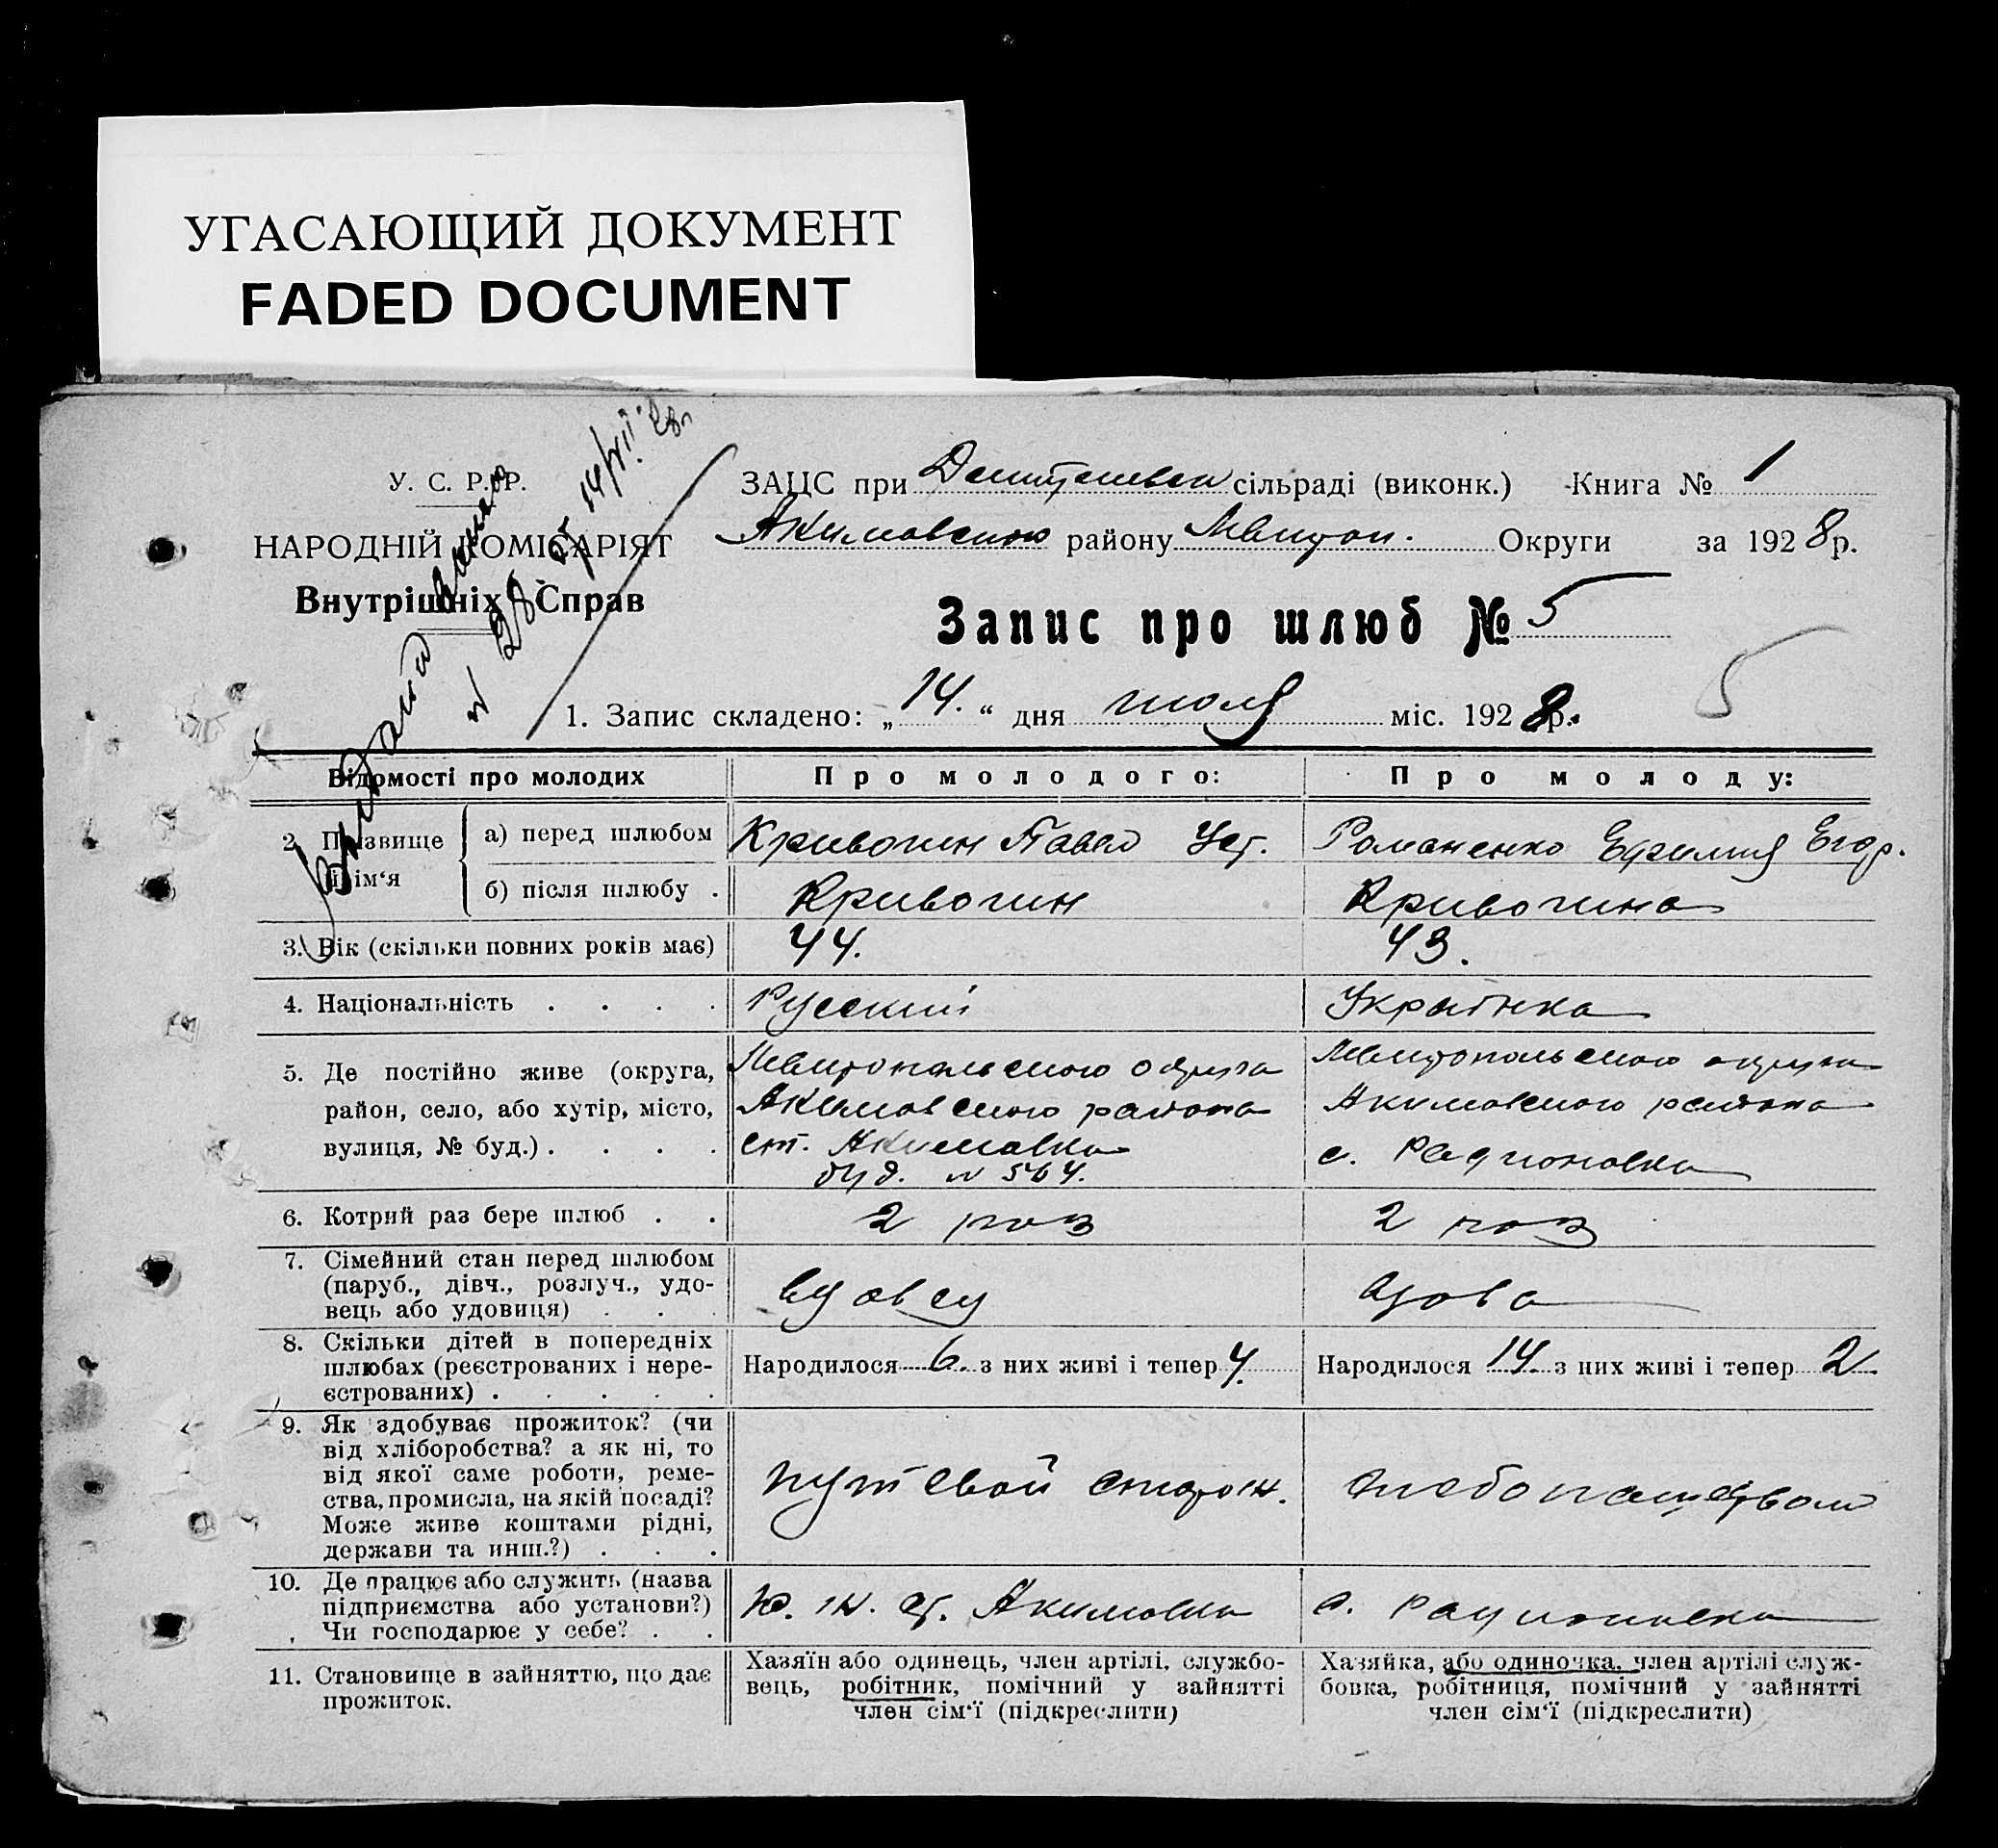 УГАСАЮЩИЙ ДОКУМЕНТ
FADED DOCUMENT
У. С. Р. Р.
НАРОДНІЙ КОМІСАРІЯТ
Внутрішніх Справ
Видана
№ 28 от 14/VII 28 г
ЗАЦС при сільраді (виконк.) Книга № 1
Акимовского району Мелитоп. Округи за 1928 р.
Запис про шлюб № 5
5
1. Запис складено: „14.“ дня июля міс. 1928 р.
Відомості про молодих
Про молодого:
Про молоду:
2. Прізвище й ім‘я
а) перед шлюбом
Кривочин Павел Уст.
Романенко Ефимия Егор.
б) після шлюбу .
Кривочин
Кривочина
3. Вік (скільки повних років має)
44.
43.
4. Національність . . . .
Русский
Украинка
5. Де постійно живе (округа,
район, село, або хутір, місто,
вулиця, № буд.) . . . .
Мелитопольского округа
Акимовского района
ст. Акимовка
буд. № 564.
Мелитопольского округа
Акимовского района
с. Радионовка
6. Котрий раз бере шлюб . .
2 раз
2 раз
7. Сімейний стан перед шлюбом
(паруб., дівч., розлуч., удо-
вець або удовиця) . . .
вдовец
вдова
8. Скільки дітей в попередніх
шлюбах (реєстрованих і нере-
єстрованих) . . . . .
Народилося 6. з них живі і тепер 4.
Народилося 14. з них живі і тепер 2.
9. Як здобуває прожиток? (чи
від хліборобства? а як ні, то
від якої саме роботи, реме-
ства, промисла, на якій посаді?
Може живе коштами рідні,
держави та инш.?) . . .
путевой сторож.
хлебопашеством
10. Де працює або служить (назва
підприємства або установи?)
Чи господарює у себе? . .
Ю. ж. д. Акимовка
с. Радионовка
11. Становище в зайняттю, що дає
прожиток.
Хазяїн або одинець, член артілі, службо-
вець, робітник, помічний у зайнятті
член сім‘ї (підкреслити)
Хазяйка, або одиночка, член артілі служ-
бовка, робітниця, помічний у зайнятті
член сім‘ї (підкреслити)